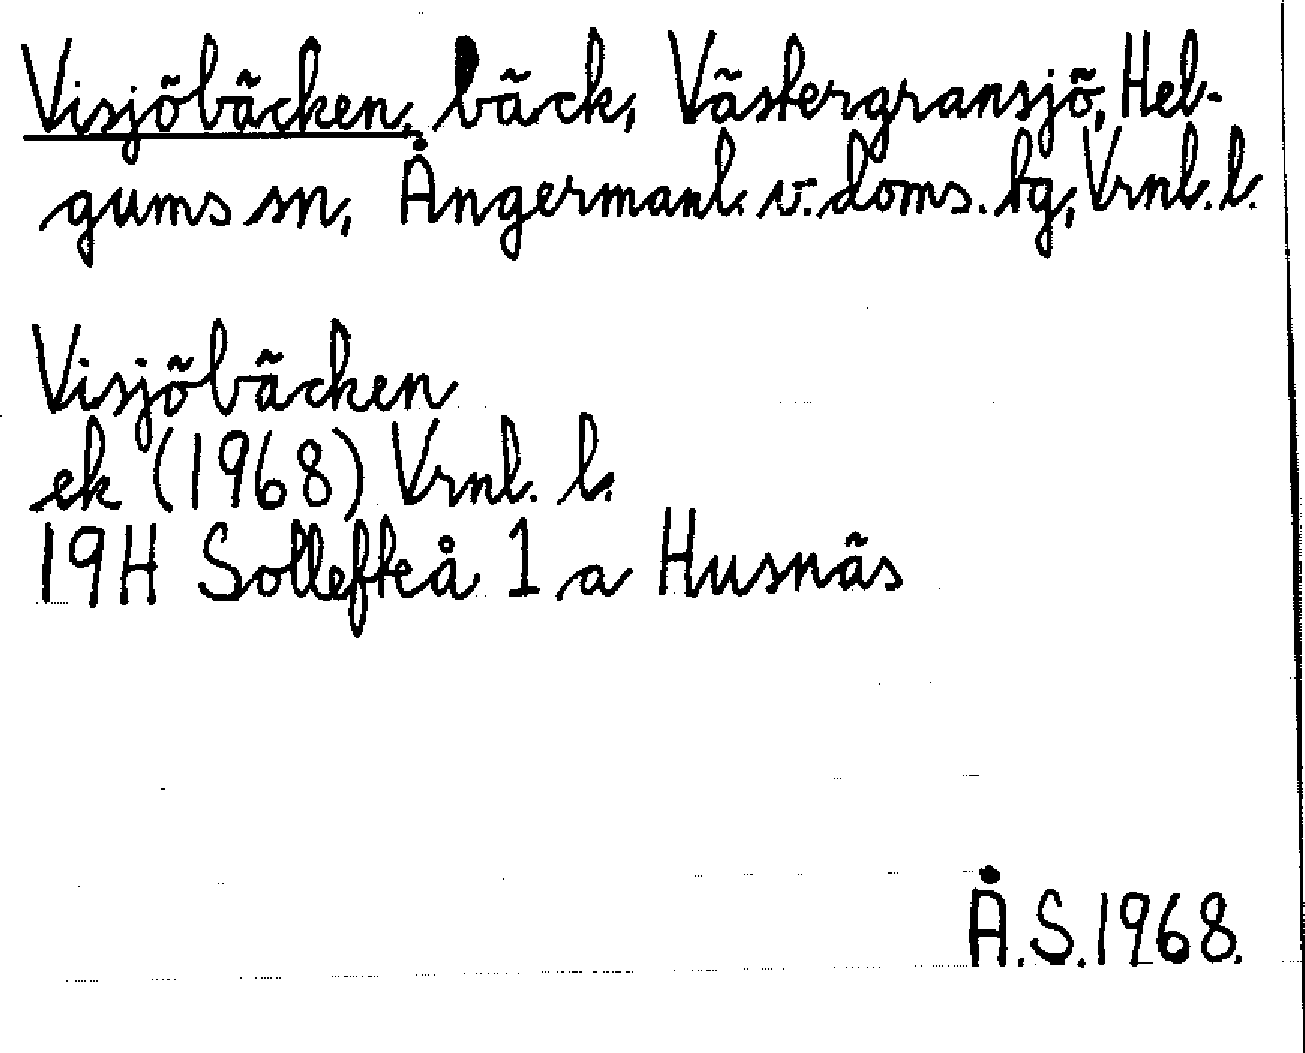 Visjöbäcken, bäck, Västergransjö, Hel-
gums sn, Ångermanl. v. doms. tg, Vrnl. l.
Visjöbäcken
ek (1968) Vrnl. l.
19H Sollefteå 1 a Husnäs
Å.S. 1968.